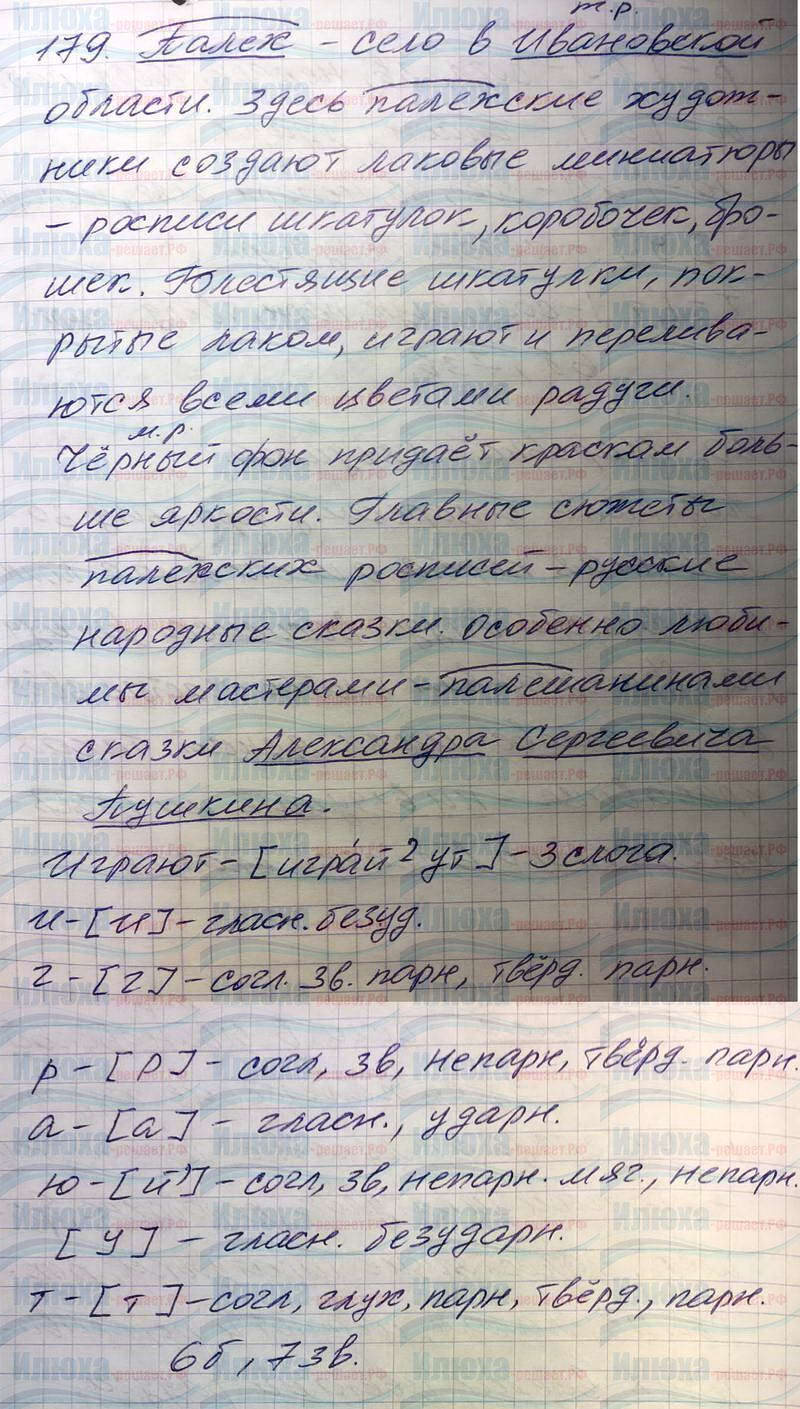 т.р.
179. Палех - село в Ивановской
области. Здесь палехские худож-
ники создают лаковые миниатюры
- росписи шкатулок, коробочек, бро-
шек. Блестящие шкатулки, пок-
рытые лаком, играют и перелива-
ются всеми цветами радуги.
м.р.
Чёрный фон придаёт краскам боль-
ше яркости. Главные сюжеты
палехских росписей - русские
народные сказки. Особенно люби-
мы мастерами-палешанинами
сказки Александра Сергеевича
Пушкина.
Играют - [играй'ут] - 3 слога.
и - [и] - гласн. безуд.
г - [г] - согл. зв. парн, твёрд. парн.
р - [р] - согл, зв, непарн, твёрд. парн.
а - [а] - гласн., ударн.
ю - [й'] - согл, зв, непарн. мяг., непарн.
[у] - гласн. безударн.
т - [т] - согл, глух, парн, твёрд., парн.
6б, 7зв.
Илюха-решает.РФ